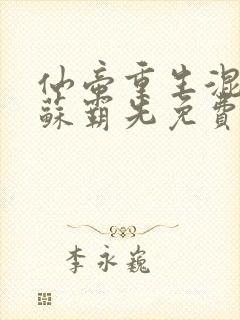 仙帝重生混
蘇霸先免費
李永巍